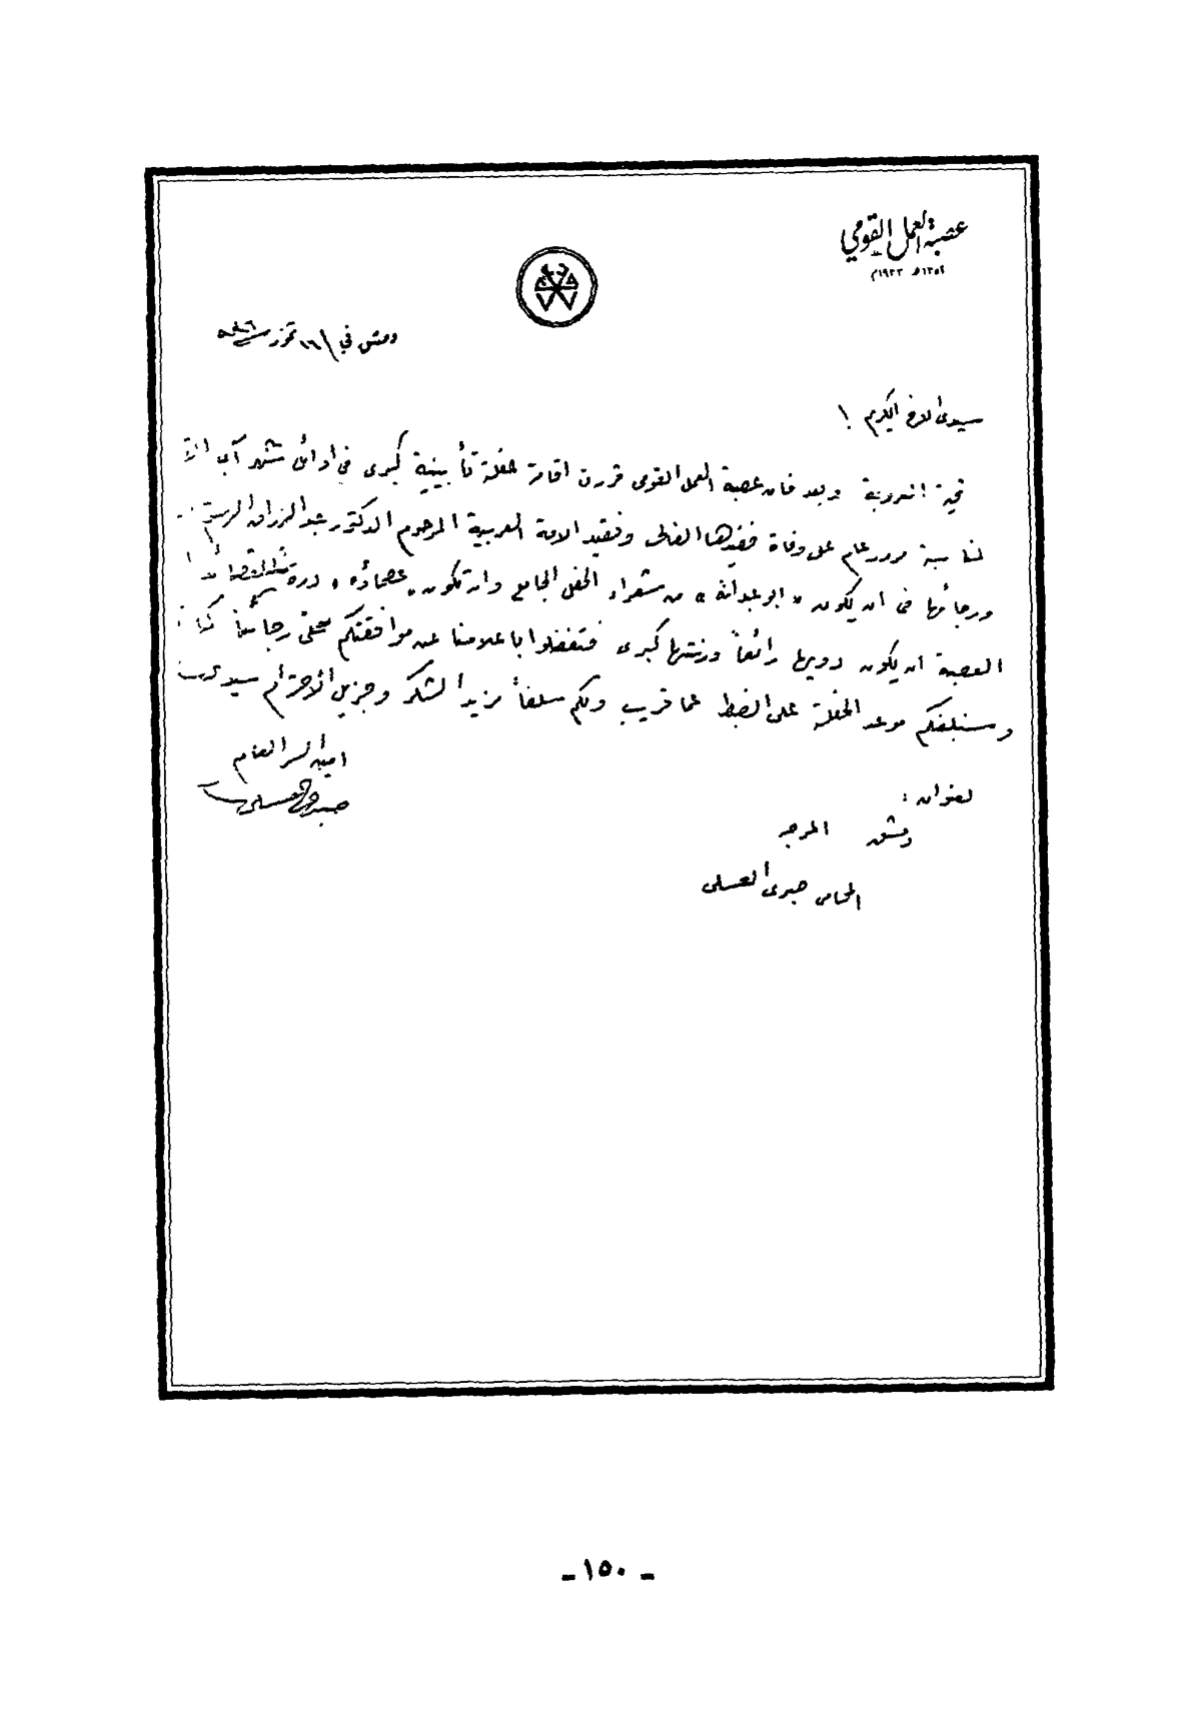 عصبة العمل القومي
١٣٥٢هـ ١٩٣٣م
دمشق في ١٦ تموز
سيدي الاخ الكريم !
تحية العروبة وبعد فان عصبة العمل القومي قررت اقامة حفلة تأبينية كبرى في اوائل شهر آب
لمناسبة مرور عام على وفاة فقيدها الغالي وفقيد الامة العربية المرحوم الدكتور عبد الرزاق
ورجائها في ان يكون « ابو عبد الله » من شعراء الحفل الجامع وان تكون « عصماؤه » درة القصائد
العصبة ان يكون دويها رائعاً ورنتها كبرى فتفضلوا باعلامنا عن موافقتكم على رجائنا
وسنبلغكم موعد الحفلة على الضبط عما قريب ولكم سلفاً مزيد الشكر وجزيل الاحترام سيدي
امين السر العام
صبري العسلي
العنوان :
دمشق المرجه
المحامي صبري العسلي
- ١٥٠ -